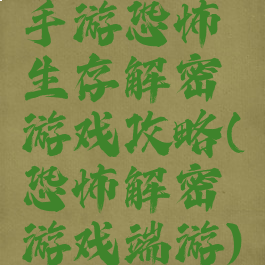 手游恐怖
生存解密
游戏攻略(
恐怖解密
游戏端游)